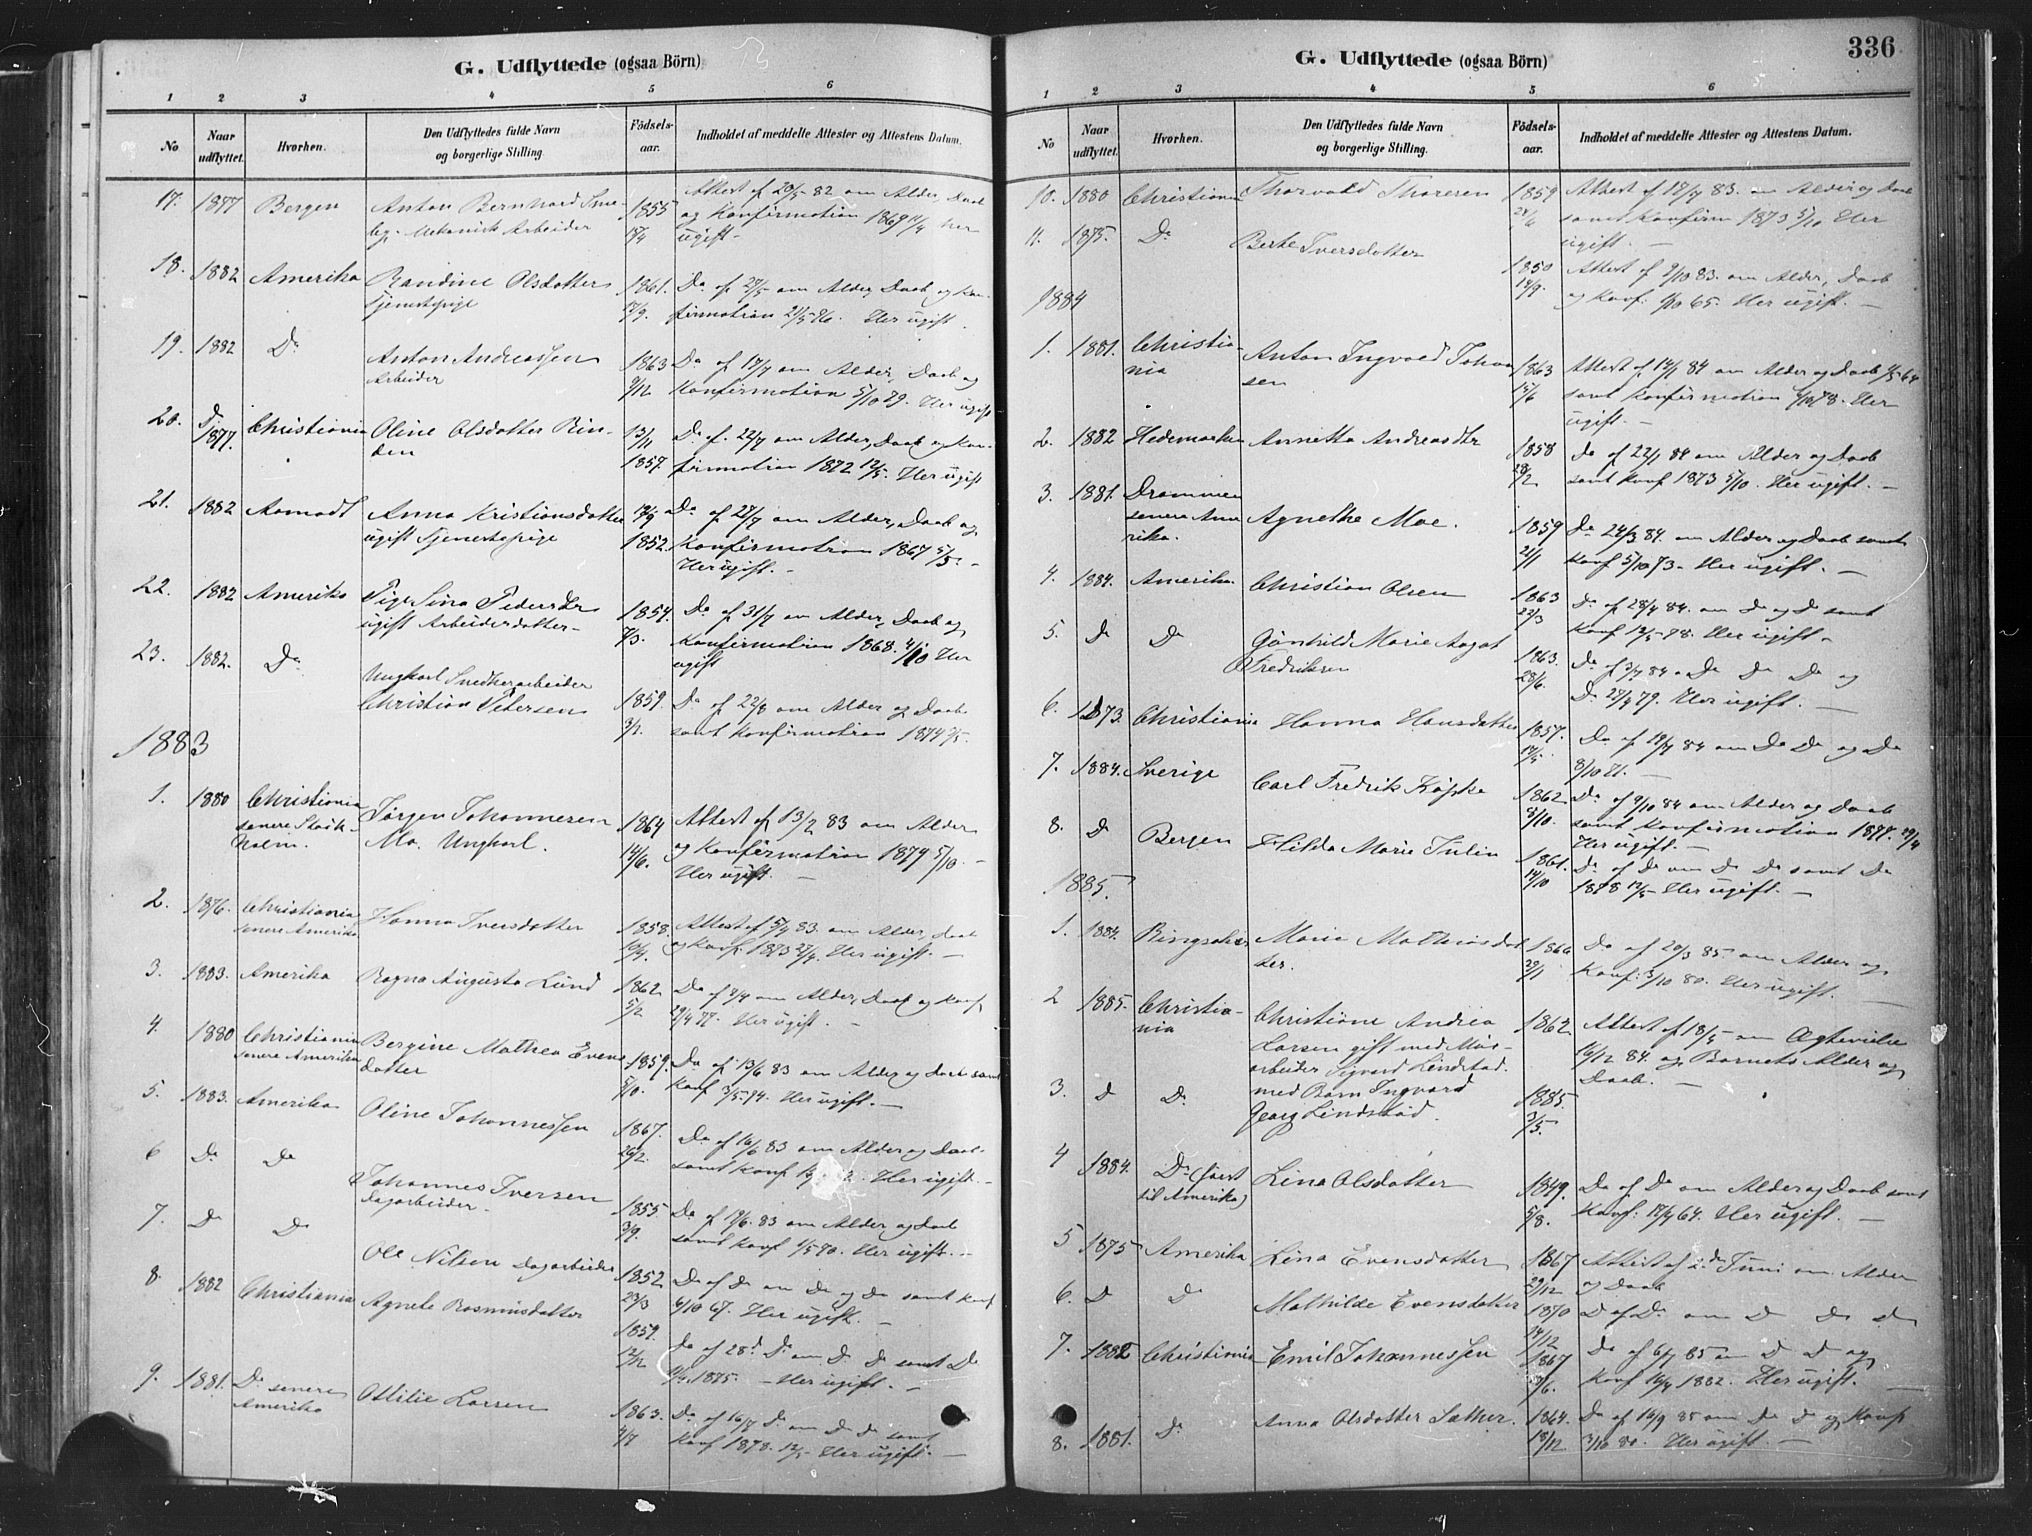 G. Udflyttede (ogsaa Börn)
1 2 3 4 5 6
No
Naar udflyttet.
Hvorhen.
Den Udflyttedes fulde Navn og borgerlige Stilling.
Födsels-aar.
Indholdet af meddelte Attester og Attestens Datum.
17. 1877 Bergen Anton Bernhard 1855 Attest af 20/5 82 om Alder, Daab
Mekanisk Arbeider og Konfirmation 1869 her
ugift. –
18. 1882 Amerika Randine Olsdatter 1861. Do af 27/5 om Alder, Daab og Kon-
Tjenestepige firmation Her ugift.
19. 1882 Do Anton Andreassen 1863 Do af 17/7 om Alder, Daab og
Arbeider 9/12 Konfirmation 5/10 79. Her ugift
20. D 1877. Christiania Oline Olsdatter Rin- 13/11 Do af 22/7 om Alder, Daab og Kon-
den 1857. firmation 1872 12/5. Her ugift
21. 1882 Aamodt Anna Kristiansdatter Do af 27/7 om Alder, Daab og
ugift Tjenestepige 1852. Konfirmation 1867 5/5. –
Her ugift. –
22. 1882 Amerika Pige Sina Pedersdtr 1854. Do af 31/7 om Alder, Daab og
ugift Arbeiderdatter – 7/3. Konfirmation 1868. 4/10 Her
ugift
23. 1882. Do Ungkarl Snedkerarbeider
Christian Petersen 1859. Do af 22/8 om Alder og Daab
3/2. samt Konfirmation 1874
1883
1. 1880 Christiania Jørgen Johannesen 1864 Attest af 13/2 83 om Alder
senere Stock- Mo. Ungkarl. 14/6. og Konfirmation 1879 5/10. –
holm. Her ugift. –
2. 1876. Christiania Hanna Iversdatter 1858. Attest af 5/4 83 om Alder, Daab
senere Amerika og Konf. 1873 27/4. Her ugift. –
3. 1883. Amerika Ragna Augusta Lund 1862. Do af om Alder, Daab og Konf.
5/2. 29/4 77. Her ugift. –
4. 1880 Christiania Bergine Mathea Evens
senere Amerika datter 1859. Do af 13/6 83 om Alder og Daab samt
5/10. Konf Her ugift. –
5. 1883. Amerika Oline Johannessen 1867. Do af 16/6 83 om Alder og Daab
26/2. samt Konf Her ugift. –
6 Do Do Johannes Iversen 1855. Do af 83 om Alder og Daab
Dagarbeider. 3/9. samt Konf 1/5 70. Her ugift. –
7. D D Ole Nilsen Dagarbeider 1852 Do af D om D og Do samt Konf
23/3 6/10 67. Her ugift. –
8. 1882 Christiania Agnete Rasmusdatter 1859. Do af 28d D om D D samt Do
12/12 1875. – Her ugift. –
9. 1881. Do senere Ottilie Larsen 1863. Do af 16/7 D om D D samt
Amerika Konf 1878. 12/5 – Her ugift. –
G. Udflyttede (ogsaa Börn)
336
1 2 3 4 5 6
No
Naar udflyttet.
Hvorhen.
Den Udflyttedes fulde Navn og borgerlige Stilling.
Födsels-aar.
Indholdet af meddelte Attester og Attestens Datum.
10. 1880 Christiania Thorvald Thoresen 1859 Attest af 18/7 83. om Alder og Daab
samt Konfirm 1873 5/10 Her
ugift. –
11. 1875. Do Berte Iversdatter 1850 Attest af 9/10 83. om Alder, Daab
og Konf: 65. Her ugift. –
1884
1. 1881. Christia- Anton Ingvald Johan
nia sen 1863 Attest af 14/1 84 om Alder og Daab
15/6 samt Konfirmation 78. Her
ugift. –
2. 1882 Hedemarken Annette Andreasdtr 1858 Do af 22/1 84 om Alder og Daab
28/2 samt Konf 1873 5/10. Her ugift. –
3. 1881. Drammen
senere Ame Agnethe Moe. 1859 Do 24/3 84. om Alder og Daab samt
rika. 21/1 Konf 5/10 73. Her ugift. –
4. 1884. Amerika Christian Olsen 1863 Do af 28/4 84. om D og D samt
22/3 Konf 12/5 78. Her ugift. –
5. D D Gønhild Marie Aagot 1863. Do af 3/7 84. Do Do Do og
Fredriksen 28/6. Do 27/4 79. Her ugift. –
6. 1873. Christiania Hanna Hansdatter 1857. Do af 19/7 84 om Do Do og Do
8/10 71. –
7. 1884. Sverige Carl Fredrik Köpke 1862 Do af 9/10 84 om Alder og Daab
8/10. samt Konfirmation 1877. 29/4
Her ugift. –
8. D Bergen Hilda Marie Julin 1861. Do af Do om D Do samt Do
14/10 1878 12/5 – Her ugift. –
1885.
1. 1884. Ringsaker Maria Mathiasdat 1866 Do af 20/3 85 om Alder og
ter. 29/1 Konf: 3/10 80. Her ugift. –
2 1885. Christia- Christine Andrea 1862. Attest af 18/5 om Ægtevielse
nia Larsen gift med Mur- 16/12 84. og Barnets Alder og
arbeider Sigvard Lindstad. Daab. –
3. D Do med Barn Ingvard 1885.
Georg Lindstad. 3/5.
4 1884. Do (først Lina Olsdatter 1849. Do af Do om Alder og Daab samt
til Amerika) 5/8. Konf: 17/4 64. Her ugift. –
5 1875 Amerika Lina Evensdatter 1867 Attest af 2den Juni om Alder
29/12 og Daab
6. D D Mathilde Evensdatter 1870 D af Do om D D D
14/12
7. 1882 Christiania Emil Johannessen 1867 Do af 6/7 85 om D D og
Konf 16/4 1882. Her ugift. –
8. 1881. Do Anna Olsdatter Sæther. 1864. Do af 16/9 85 om Do D og Konf
18/12 3/10 80. Her ugift. –